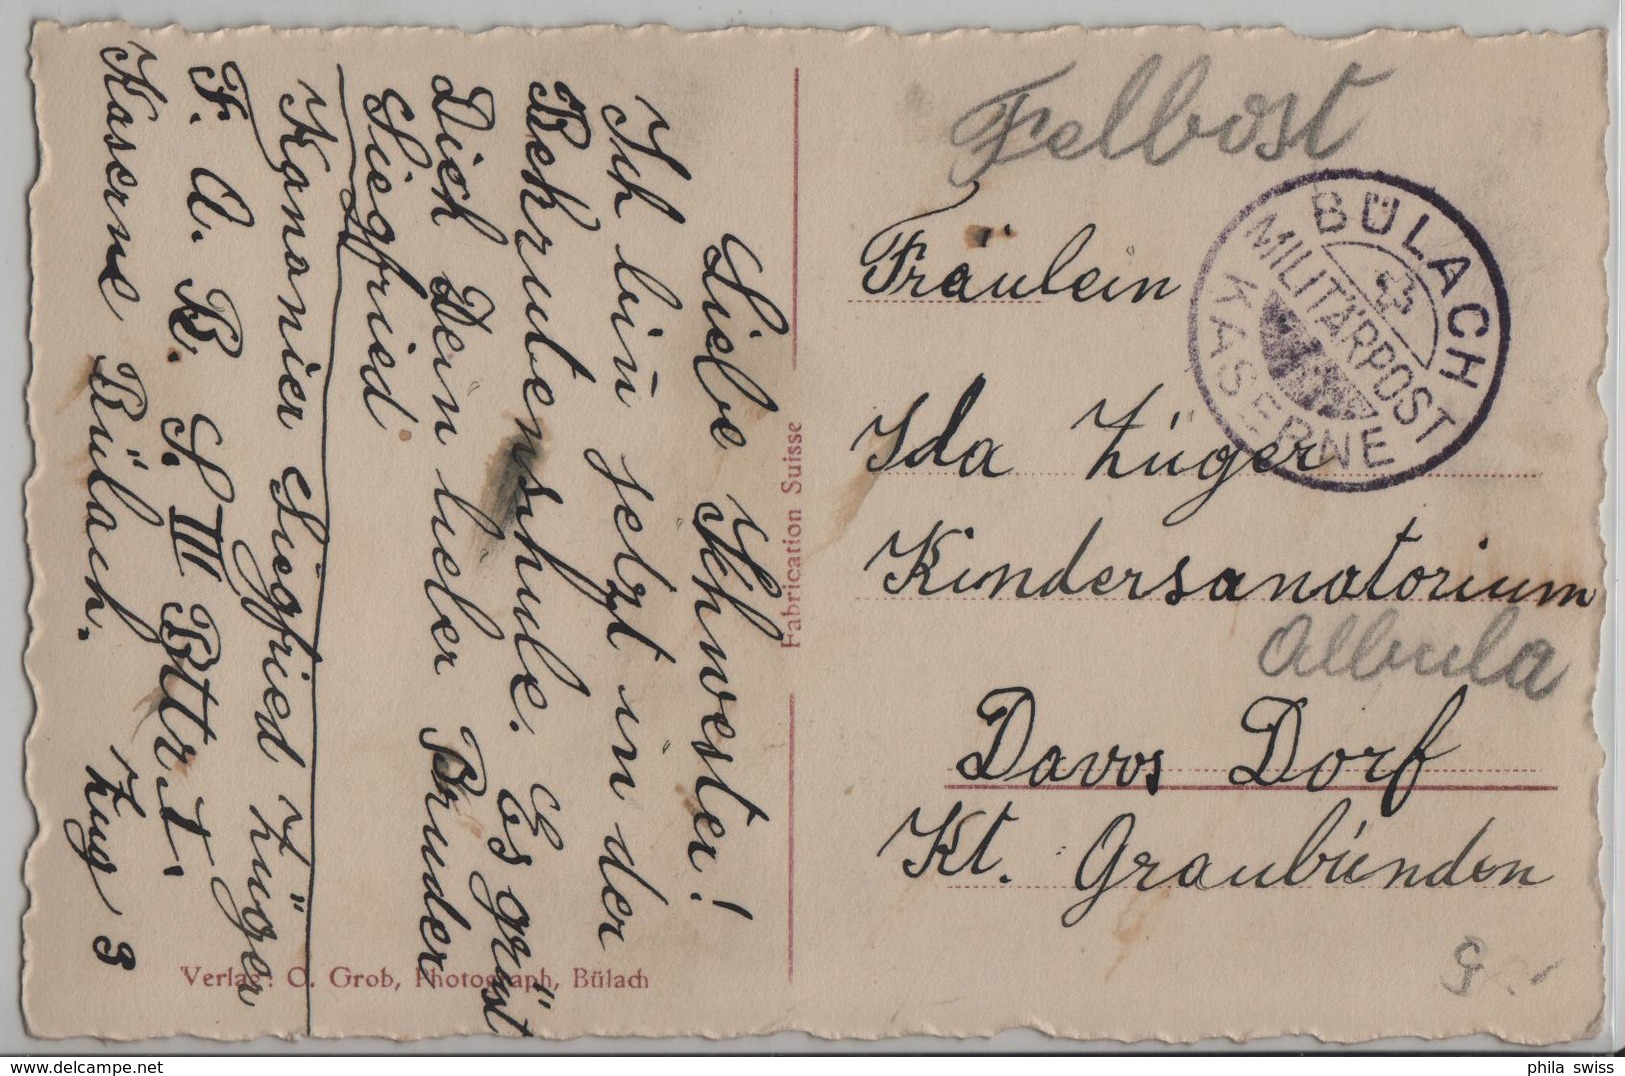 Liebe Schwester!
Ich bin jetzt in der
Rekrutenschule. Es grüst
Dich Dein lieber Bruder
Siegfried
Kanonier Siegfried Züger
F. A. R. S. III Bttr. I.
Kaserne Bülach. Zug 3
Felbost
Fräulein
Ida Züger
Kindersanatorium
Albula
Davos Dorf
Kt. Graubünden
BÜLACH
MILITÄRPOST
KASERNE
Fabrication Suisse
Verlag: O. Grob, Photograph, Bülach
phila swiss